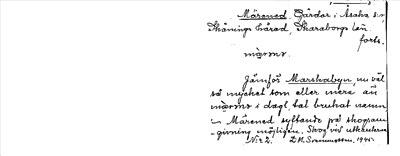 Märened. Gårdar i Åsaka s:n
Skånings härad, Skaraborgs län.
forts.
Jämför Marskabyn, nu väl
så mycket som eller mera än
i dagl. tal brukat namn
Märened syftande på skogsom-
givning möjligen. Skog vid utkanterna
N:r 2. 1945.